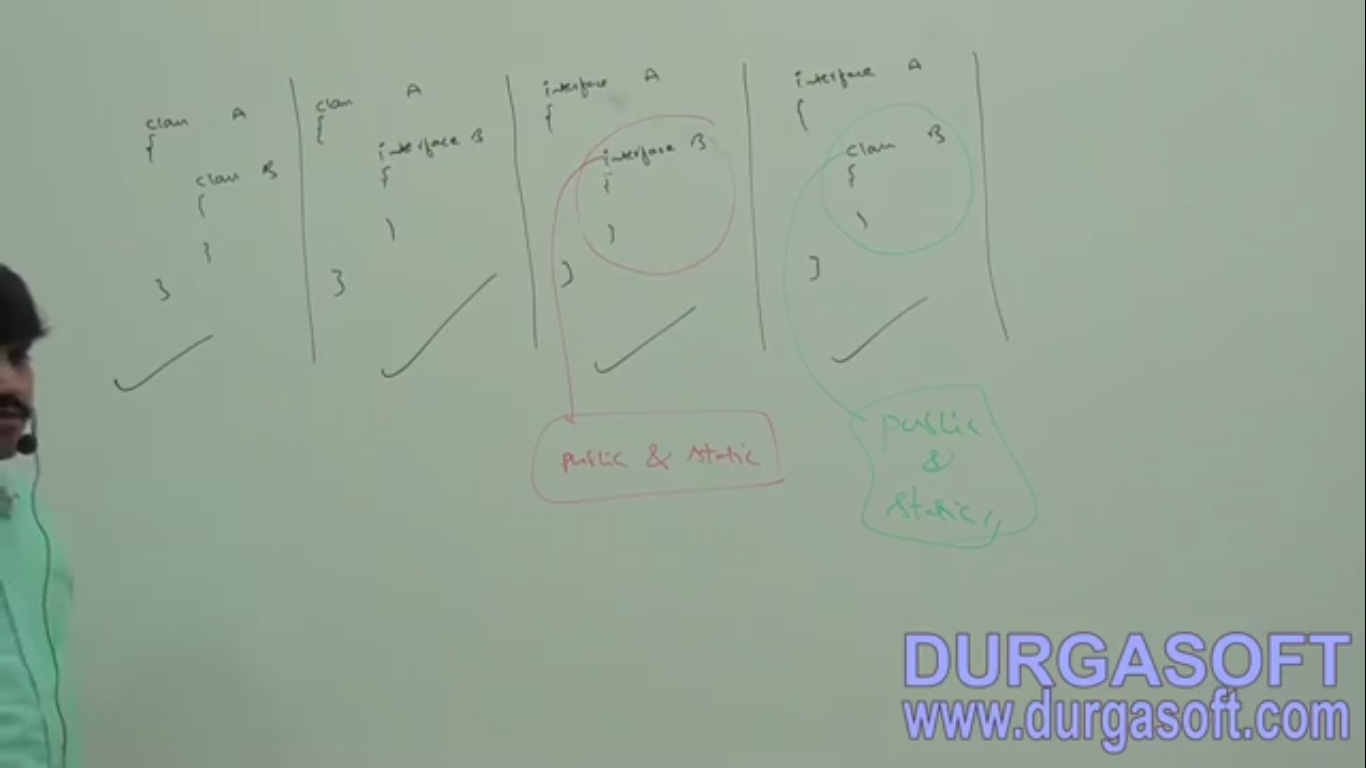 class A
{
class B
{
}
}
class A
{
interface B
{
}
}
interface A
{
interface B
{
}
}
public & static
interface A
{
class B
{
}
}
public
&
static
DURGASOFT
www.durgasoft.com